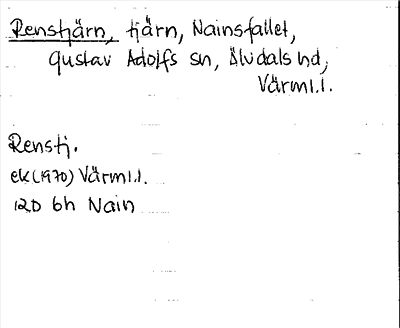 Renstjärn, tjärn, Nainsfallet,
Gustav Adolfs sn, Älvdals hd,
Värml.l.
Renstj.
ek(1970) Värml.l.
12D 6h Nain